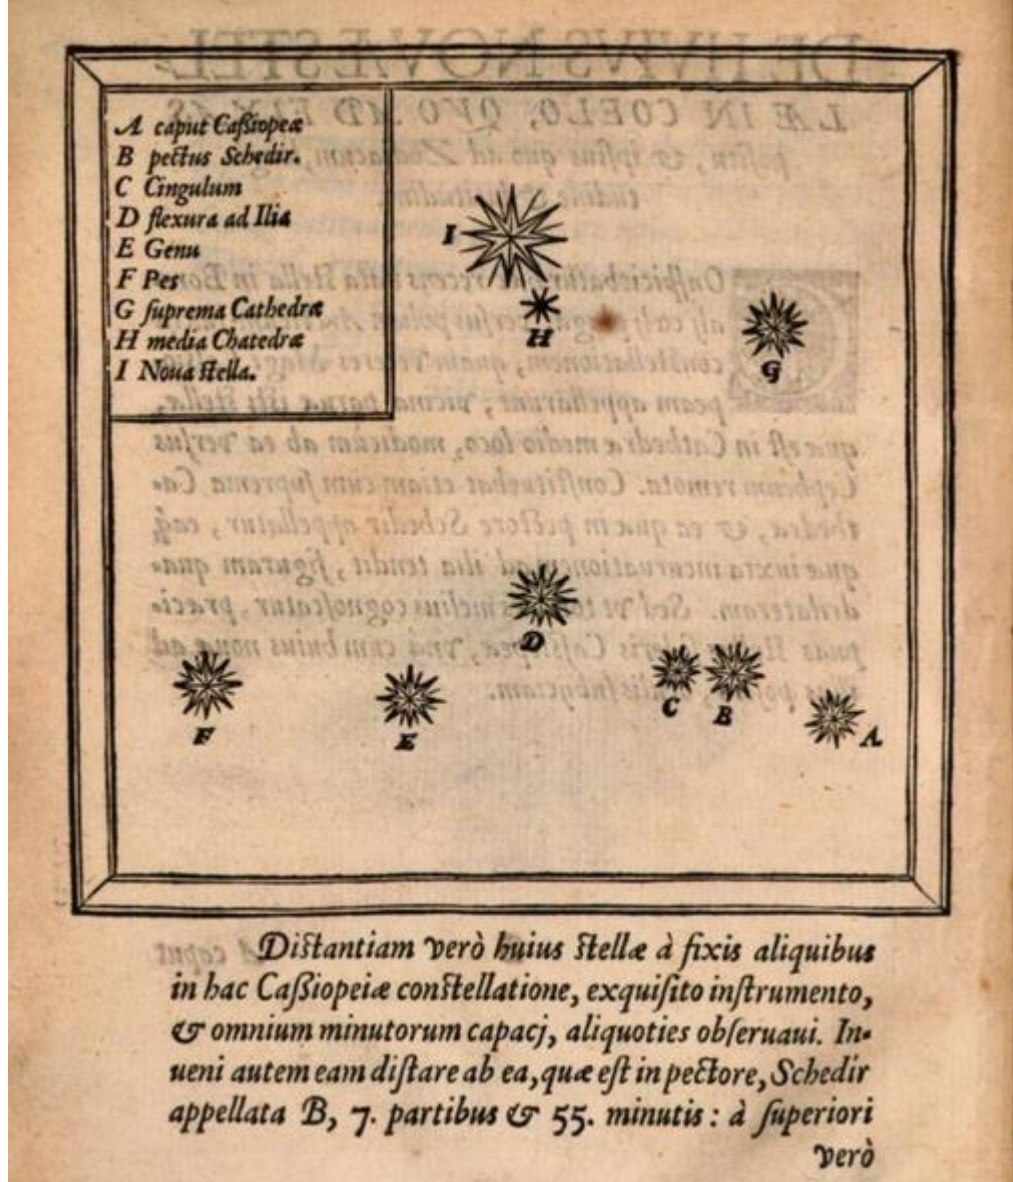 A caput Caßiopeæ
B pectus Schedir.
C Cingulum
D flexura ad Ilia
E Genu
F Pes
G ſuprema Cathedræ
H media Chatedræ
I Noua ſtella.
I
H
G
D
C
B
F
E
A
Diſtantiam verò huius ſtellæ à fixis aliquibus
in hac Caßiopeiæ conſtellatione, exquiſito inſtrumento,
& omnium minutorum capacj, aliquoties obſeruaui. In-
ueni autem eam diſtare ab ea, quæ eſt in pectore, Schedir
appellata B, 7. partibus & 55. minutis : à ſuperiori
verò